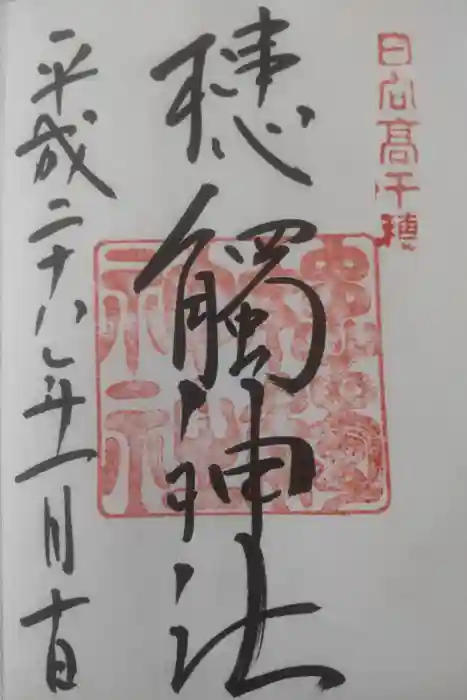 日向髙千穂
槵觸神社
平成二十八年十一月十日